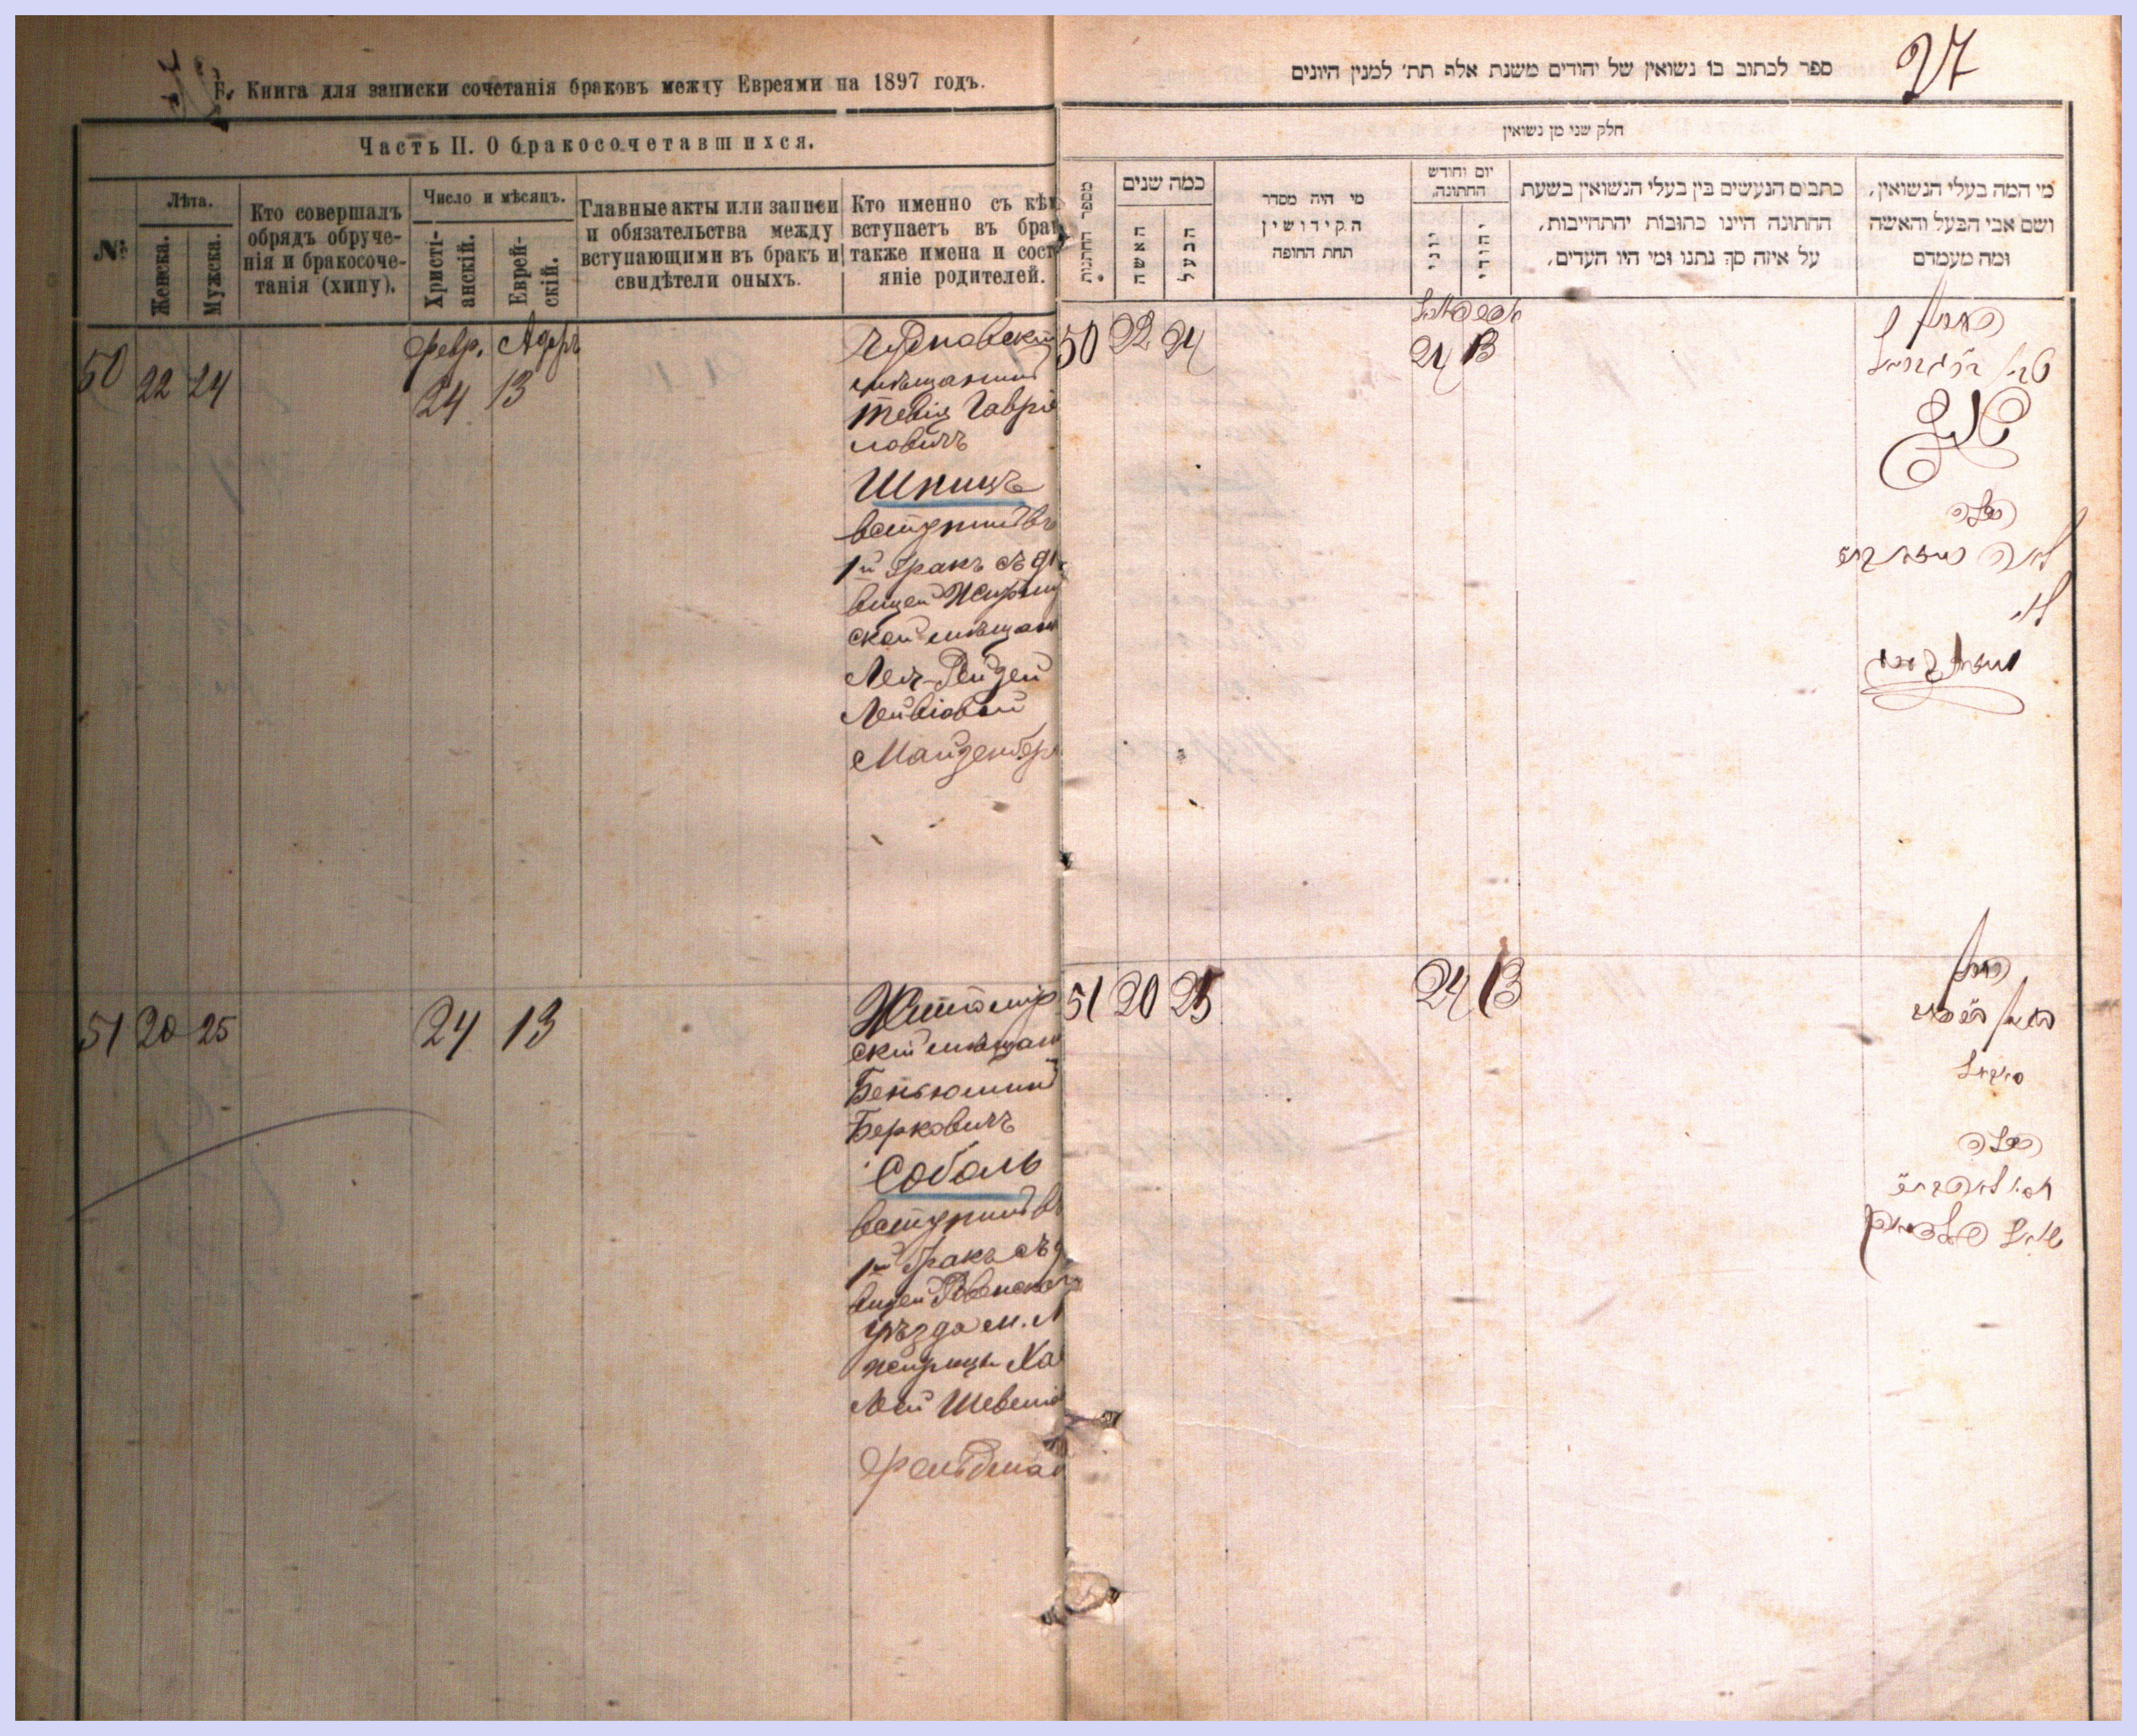 Б. Книга для записки сочетанія браковъ между Евреями на 1897 годъ.
Часть II. О бракосочетавшихся.
№
Лѣта.
Женска.
Мужска.
Кто совершалъ
обрядъ обруче-
нія и бракосоче-
танія (хипу).
Число и мѣсяцъ.
Христі-
анскій.
Еврей-
скій.
Главные акты или записи
и обязательства между
вступающими въ бракъ и
свидѣтели оныхъ.
Кто именно съ кѣм
вступаетъ въ брак
также имена и сост
яніе родителей.
50 22 24
февр. Адаръ
24 13
Чудновскій
мѣщанинъ
Тевія Гаврі
ловичъ
Шпицъ
вступилъ въ
1й бракъ съ дѣ
вицей
ской мѣщан
Леи-Рейзей
Лейвіовой
Майденберг
51 20 25
24 13
Житомір
скій мѣщан
Беньюминъ
Берковичъ
Соболь
вступилъ в
1й бракъ съ д
вицей Ровенской
уѣзда м. М
жирицы Ха
Леи Шевелио
Фельдман
ספר לכתוב בו נשואין של יהודים משנת אלף תת׳ למנין היונים
27
חלק שני מן נשואין
מספר החתונות
כמה שנים
האשה
הבעל
מי היה מסדר
הקידושין
תחת החופה
יום וחודש
החתונה.
יוני
יהודי
כתבים הנעשים בין בעלי הנשואין בשעת
החתונה היינו כתובות והתחייבות,
על איזה סך נתנו ומי היו העדים,
מי המה בעלי הנשואין,
ושם אבי הבעל והאשה
ומה מעמדם
50 22 24
24 13
הכלה
51 20 25
24 13
החתן
הכלה